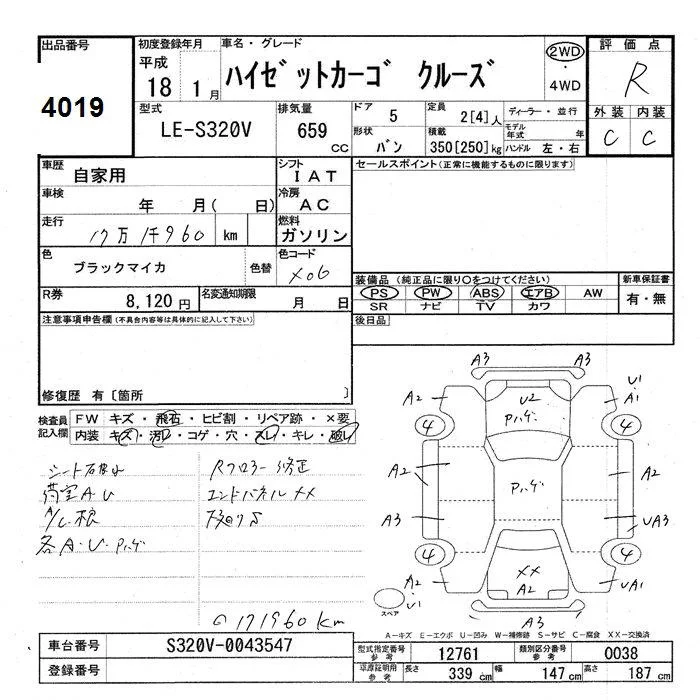 出品番号
4019
初度登録年月
平成
18 1月
車名・グレード
ハイゼットカーゴ クルーズ
2WD
・
4WD
評価点
R
外装 内装
C C
型式
LE-S320V
排気量
659 CC
ドア 5
形状 バン
定員 2[4]人
積載 350[250]kg
ディーラー・並行
モデル年式 年
ハンドル 左・右
車歴
自家用
シフト
IAT
車検
年 月( 日)
冷房
AC
走行
17万1千960 km
燃料
ガソリン
色
ブラックマイカ
色替
色コード
X06
R券
8,120円
名変通知期限
月 日
セールスポイント(正常に機能するものに限ります)
装備品(純正品に限り〇をつけてください)
PS PW ABS エアB AW
SR ナビ TV カワ
新車保証書
有・無
後日品
注意事項申告欄(不具合内容等は具体的に記入して下さい)
修復歴 有〔箇所 〕
検査員
記入欄
FW キズ・飛石・ヒビ割・リペア跡・×要
内装 キズ・汚レ・コゲ・穴・スレ・キレ・破レ
荷室A U
各A・U・Pハゲ
Rフロアー修正
エンドパネルXX
171960km
A3
A3
A2
U2
Pハゲ
U1
A1
4
4
A2
Pハゲ
A2
A3
UA3
4
4
A2
XX
A2
UA1
U1
スペア
A3
A-キズ E-エクボ U-凹み W-補修跡 S-サビ C-腐食 XX-交換済
車台番号
S320V-0043547
登録番号
型式指定番号
参考
12761
類別区分番号
参考
0038
車庫証明用
参考
長さ 339 cm
幅 147 cm
高さ 187 cm